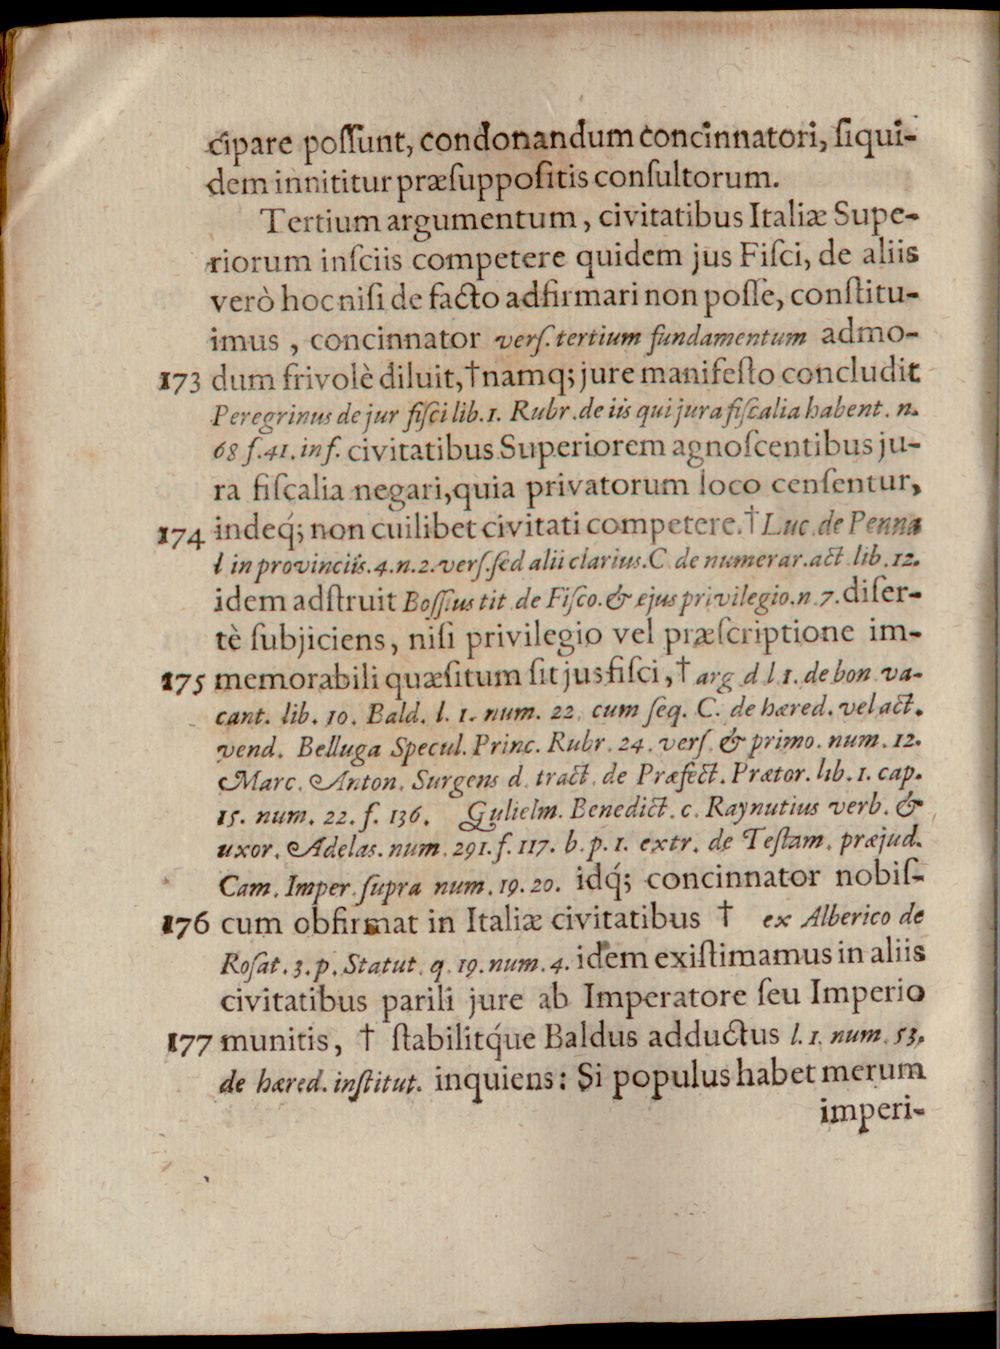 cipare poſſunt, condonandum concinnatori, ſiqui-
dem innititur præſuppoſitis conſultorum.
Tertium argumentum, civitatibus Italiæ Supe-
riorum inſciis competere quidem jus Fiſci, de aliis
verò hoc niſi de facto adfirmari non poſſe, conſtitu-
imus, concinnator verſ. tertium fundamentum admo-
173 dum frivolè diluit, † namq; jure manifeſto concludit
Peregrinus de jur fiſci lib. 1. Rubr. de iis qui jura fiſcalia habent. n.
68 f. 41. inf. civitatibus Superiorem agnoſcentibus ju-
ra fiſcalia negari, quia privatorum loco cenſentur,
174 indeq́; non cuilibet civitati competere. † Luc. de Penna
l in provinciis. 4. n. 2. verſ. ſed alii clarius. C de numerar. act lib. 12.
idem adſtruit Boſſius tit de Fiſco. & ejus privilegio. n 7. diſer-
tè ſubjiciens, niſi privilegio vel præſcriptione im-
175 memorabili quæſitum ſit jus fiſci, † arg d l 1. de bon va-
cant. lib. 10. Bald. l. 1. num. 22. cum ſeq. C. de hæred. vel act.
vend. Belluga Specul. Princ. Rubr. 24. verſ. & primo. num. 12.
Marc. Anton. Surgens d. tract. de Præfect. Prætor. lib. 1. cap.
15. num. 22. f. 136. Gulielm. Benedict. c. Raynutius verb. &
uxor. Adelas. num. 291. f. 117. b. p. 1. extr. de Teſtam. præjud.
Cam. Imper. ſupra num. 19. 20. idq́; concinnator nobiſ-
176 cum obfirmat in Italiæ civitatibus † ex Alberico de
Roſat. 3. p. Statut. q. 19. num. 4. idem exiſtimamus in aliis
civitatibus parili jure ab Imperatore ſeu Imperio
177 munitis, † ſtabilitq́ue Baldus adductus l. 1. num. 53.
de hæred. inſtitut. inquiens: Si populus habet merum
imperi-